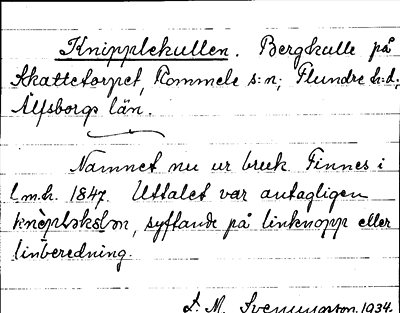 Knipplekullen. Bergkulle på
Skattetorpet, Rommele s:n; Flundre h:d;
Älfsborgs län.
Namnet nu ur bruk. Finnes i
l.m.h. 1847. Uttalet var antagligen
syftande på linknopp eller
linberedning.
L. M. Svenungsson. 1934.